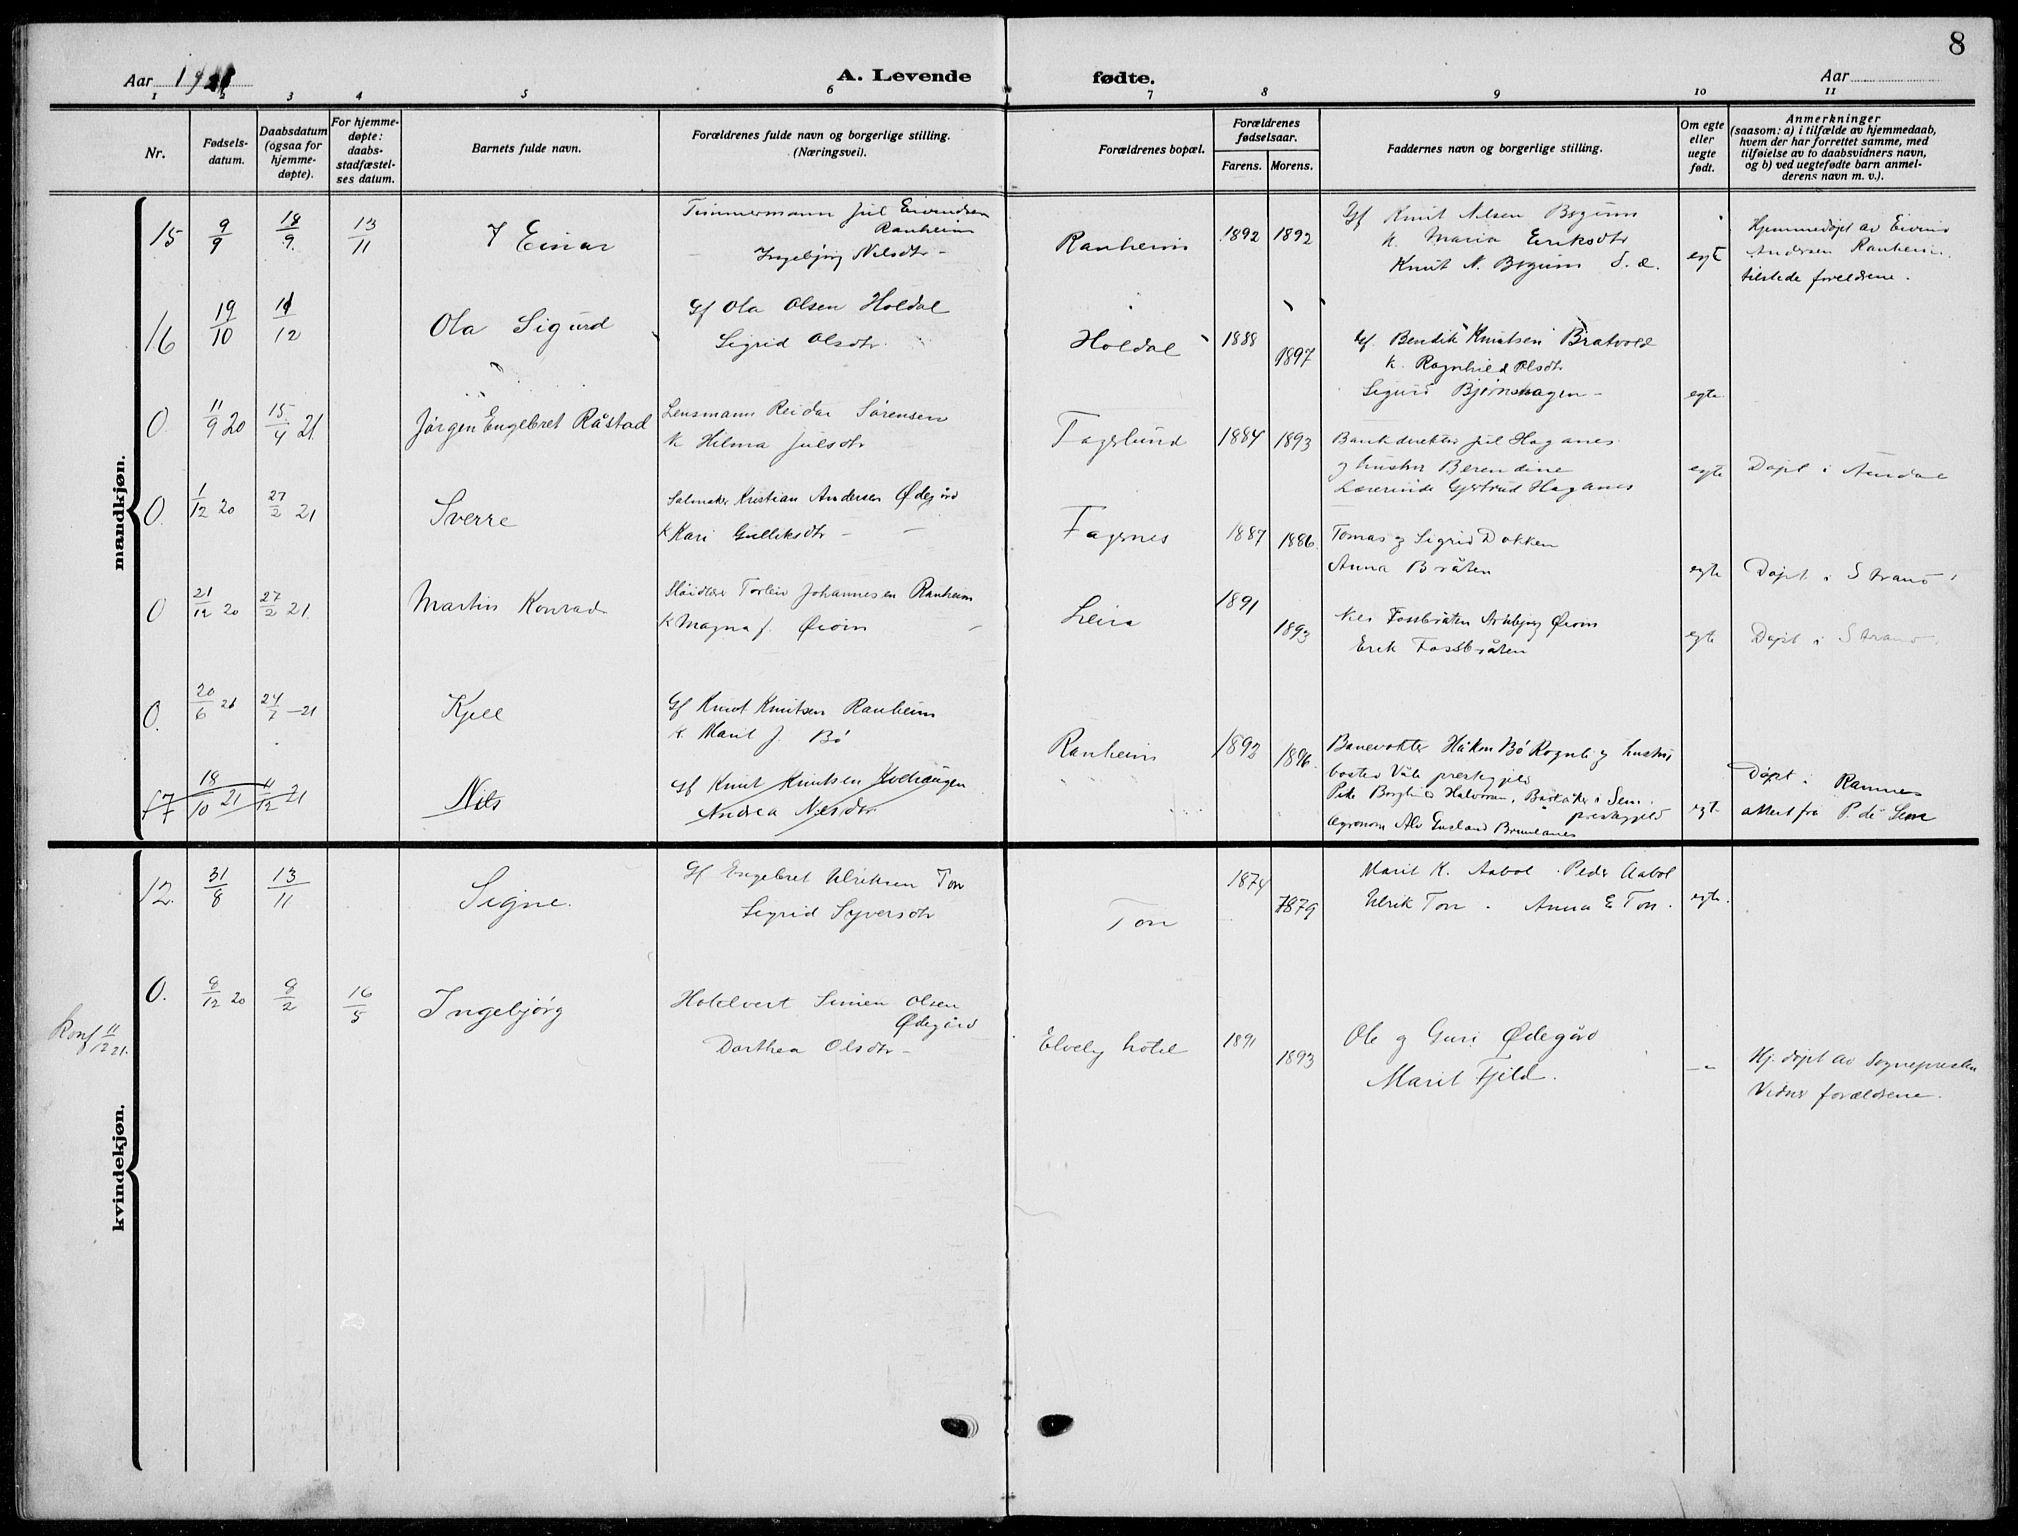 8
Aar 1921 A. Levende fødte. Aar
1 2 3 4 5 6 7 8 9 10 11
Nr.
Fødsels-
datum.
Daabsdatum
(ogsaa for
hjemme-
døpte).
For hjemme-
døpte:
daabs-
stadfæstel-
ses datum.
Barnets fulde navn.
Forældrenes fulde navn og borgerlige stilling.
(Næringsvei).
Forældrenes bopæl.
Forældrenes
fødselsaar.
Farens. Morens.
Faddernes navn og borgerlige stilling.
Om egte
eller
uegte
født.
Anmerkninger
(saasom: a) i tilfælde av hjemmedaab,
hvem der har forrettet samme, med
tilføielse av to daabsvidners navn,
og b) ved uegtefødte barn anmel-
derens navn m. v.).
mandkjøn.
15 9/9 18/9. 13/11 Einar
Tømmermann Jul Eivindsen
Ranheim
Ingebjørg Nilsdtr -
Ranheim 1892 1892
Gf Knut Nilsen Bøgum
K. Maria Eriksdtr
Knut N. Bøgum S. æ.
egt
Hjemmedøpt av Eivind
Andersen Ranheim.
tilstede foreldrene.
16 19/10 11/12 Ola Sigurd
Gf Ola Olsen Holdal
Sigrid Olsdtr.
Holdal 1888 1897
Gf Bendik Knutsen Bratvold
K. Ragnhild Olsdtr
Sigurd Bjørnshagen -
egte
0 11/9 20 15/4 21 Jørgen Engebret Råstad
Lensmann Reidar Sørensen
K Hilma Julsdtr
Fagerlund 1884 1893
Bankdirektør Jul Haganes
og hustru Berendine
Lærerinde Gjertrud Haganes
egte
Døpt i Aurdal
0 1/12 20 27/2 21 Sverre
Salmaker Kristian Andersen Ødegård
K Kari Gulliksdtr -
Fagernes 1887 1886
Tomas og Sigrid Dokken
Anna Bråten
egte
Døpt i Strand
0 21/12 20 27/2 21 Martin Konrad
Sløidlærer Torleiv Johannesen Ranheim
K Magna J. Øioin
Leira 1891 1893
Nils Fossbråten Arnbjørg Øioin
Erik Fossbråten
egte
Døpt i Strand.
0. 20/6 21 24/7 - 21 Kjell
Gf Knut Knutsen Ranheim
K. Marit J. Bø
Ranheim 1893 1896
Banevokter Håkon Bø Rognli og hustru
bosted Våle prestegjeld
Halvorsen, i Sem
prestegjeld
Agronom Alv Brunlanes
egt
Døpt i Ramnes
attest fra P. de Seve
17 18/10 21 11/12 21 Nils
Gf Knut Knutsen Kvehaugen
Andrea Nilsdtr
kvindekjøn.
12. 31/8 13/11 Signe.
Gf Engebret Ulriksen Ton
Sigrid Syversdtr
Ton 1874 1879
Marit K. Aabol. Peder Aabol
Ulrik Ton. Anna E Ton.
egte.
0. 8/12 20 8/2 16/5 Ingebjørg
Konf 11/12 21.
Hotelvert Simen Olsen
Ødegård
Dorthea Olsdtr -
Elvely hotel 1891 1893
Ole og Guri Ødegård
Marit Fjeld.
-"-
Hj. døpt av Sognepresten
Vidner forældrene.